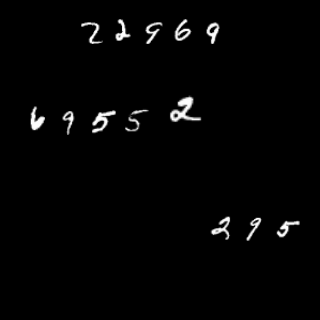 22969
69552
295